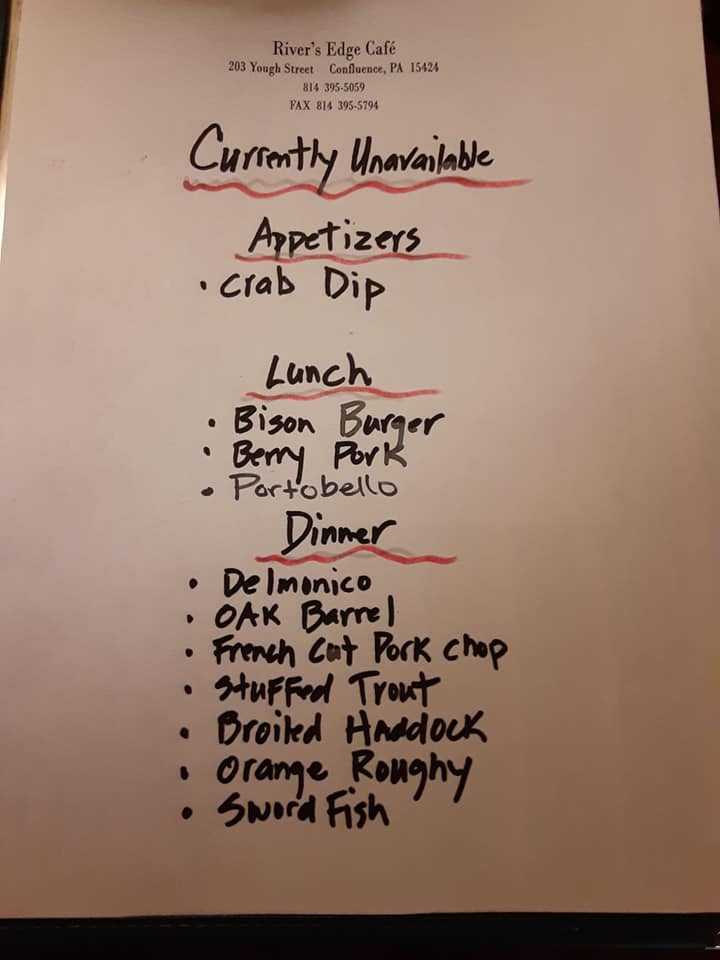 River's Edge Café
203 Yough Street Confluence, PA 15424
814 395-5059
FAX 814 395-5794
Currently Unavailable
Appetizers
• Crab Dip
Lunch
• Bison Burger
• Berry Pork
• Portobello
Dinner
• Delmonico
• OAK Barrel
• French Cut Pork chop
• Stuffed Trout
• Broiled Haddock
• Orange Roughy
• Sword Fish